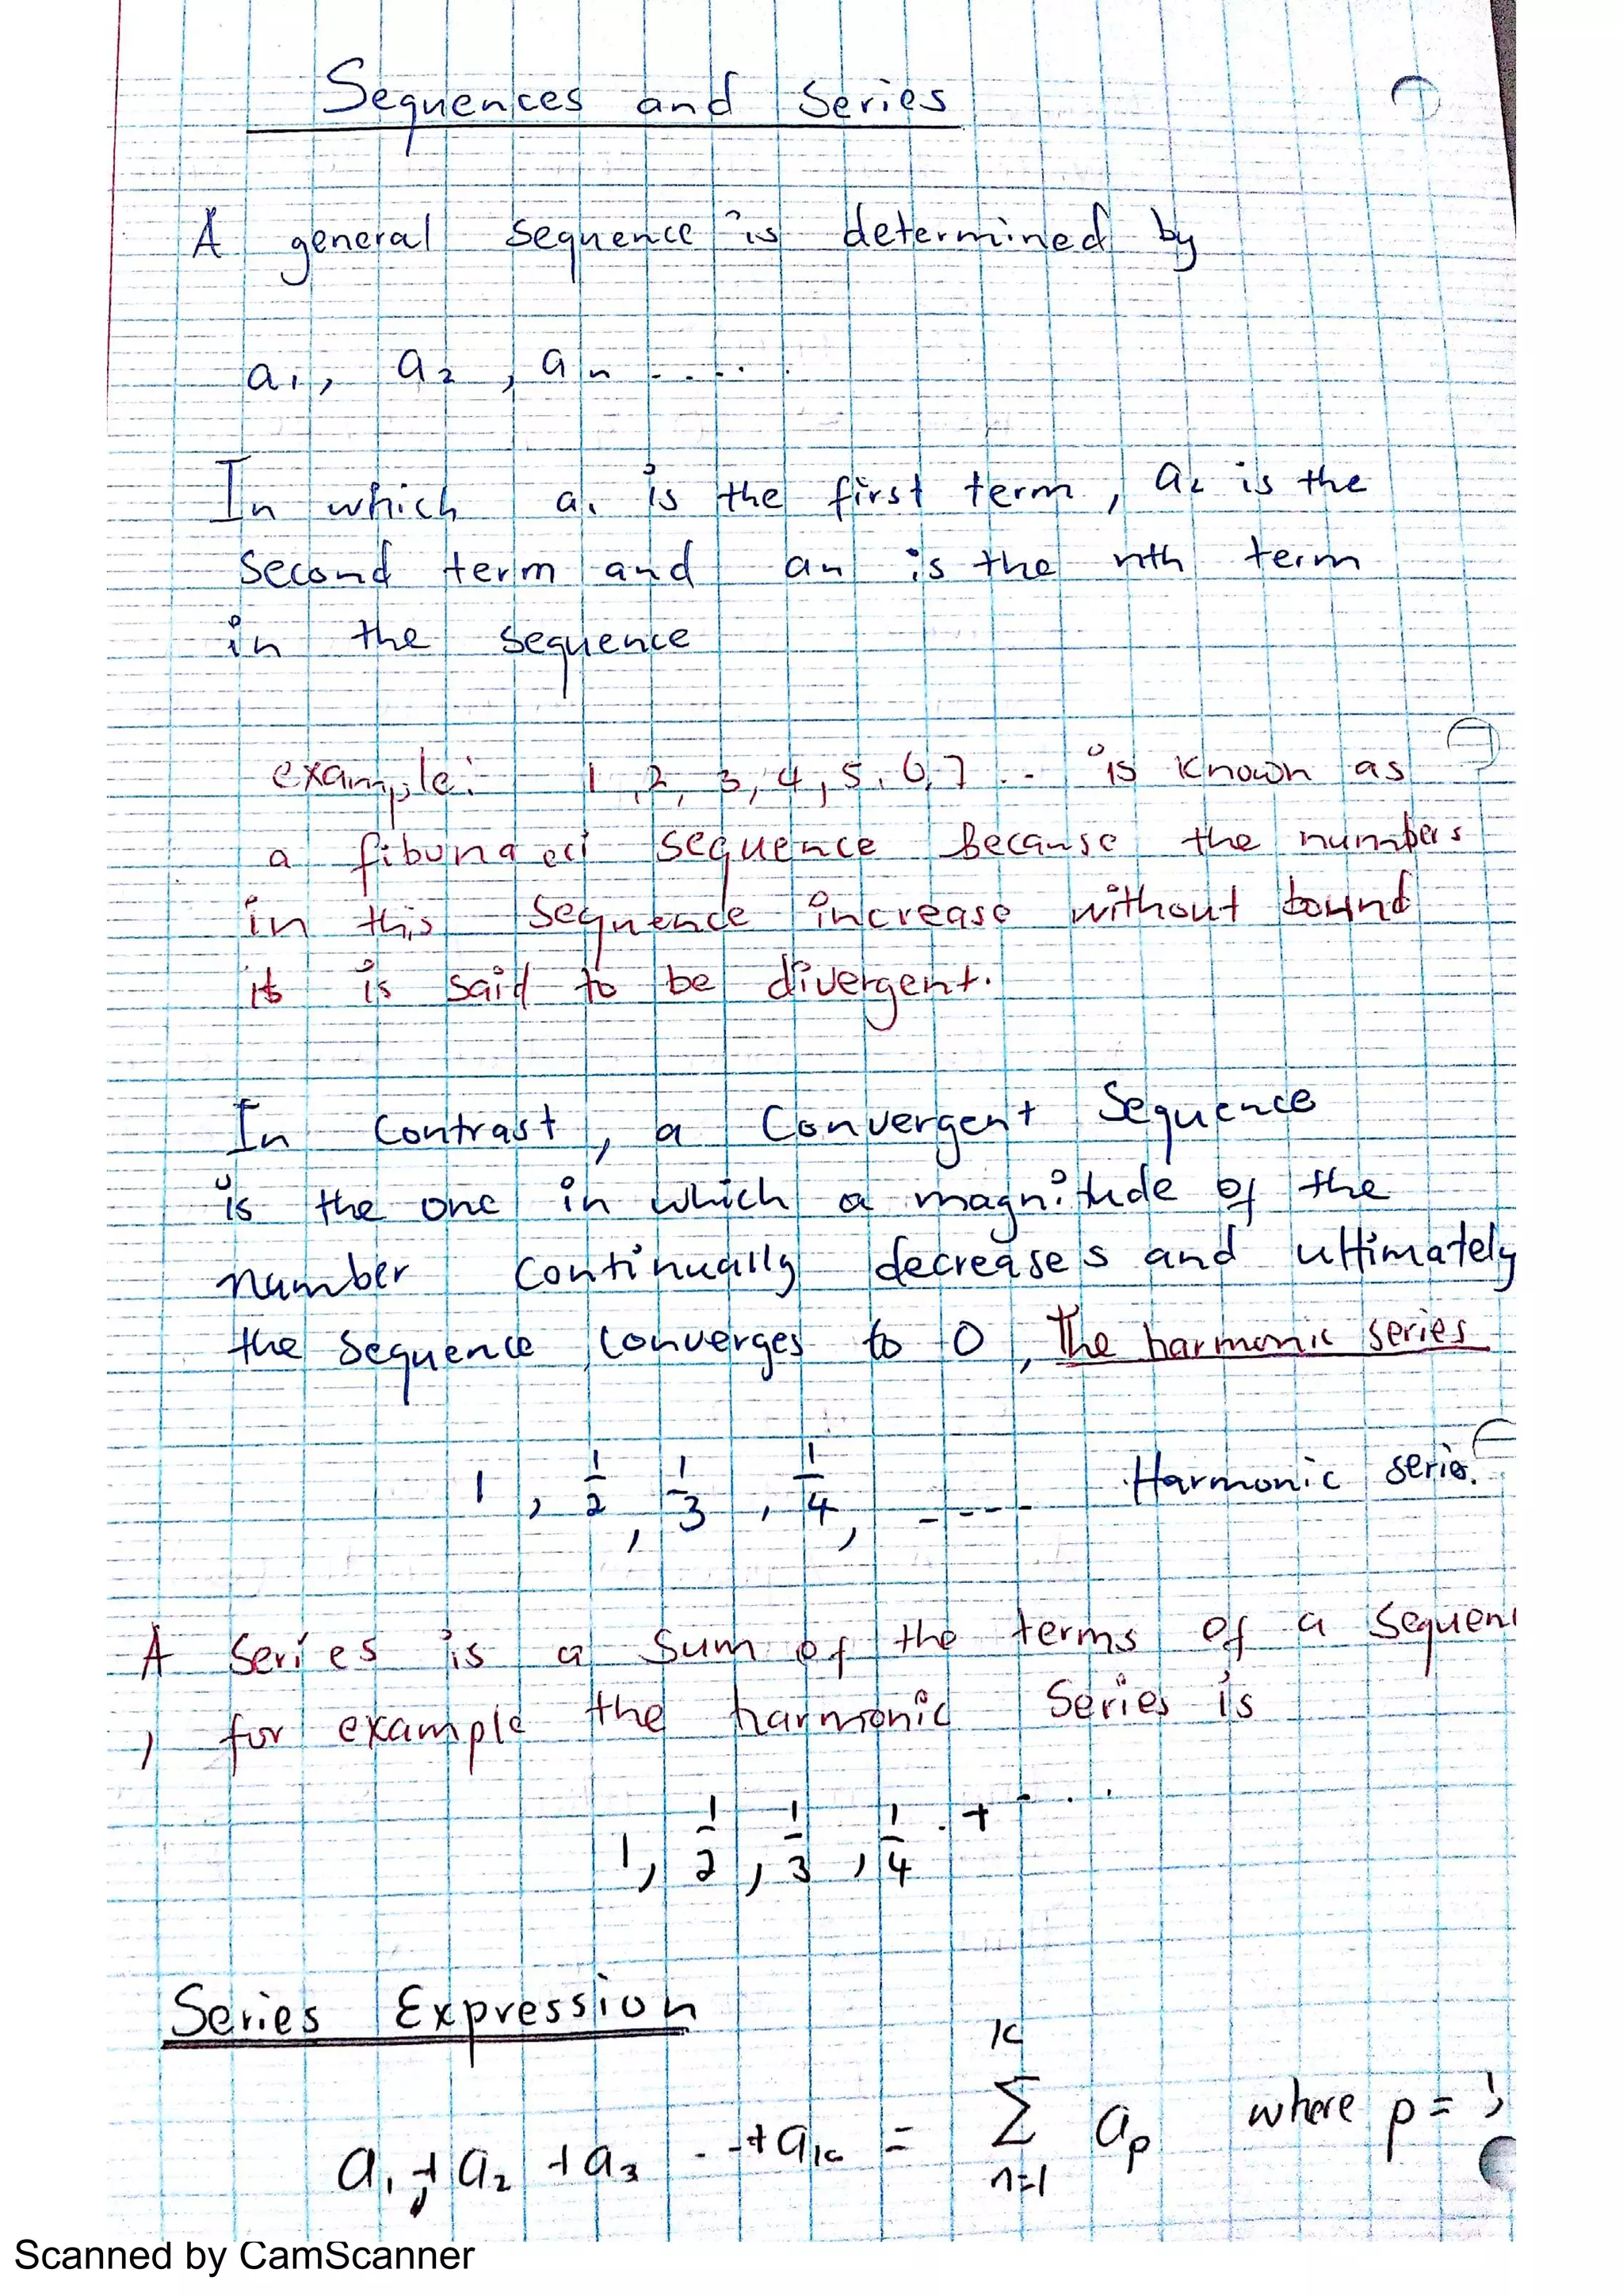 Sequences and Series
A general sequence is determined by
a₁, a₂, aₙ .....
In which a₁ is the first term, a₂ is the
second term and an is the nth term
in the sequence
example: 1, 2, 3, 4, 5, 6, 7 ... is known as
a fibunacci sequence because the numbers
in this sequence increase without bound
it is said to be divergent.
In Contrast, a Convergent Sequence
is the one in which a magnitude of the
number continually decreases and ultimately
the sequence converges to 0, The harmonic series
1, 1/2, 1/3, 1/4, ---- Harmonic series.
A series is a sum of the terms of a sequen
, for example the harmonic Series is
1, 1/2, 1/3, 1/4 . + - ...
Series Expression
a₁ + a₂ + a₃ ... + aₖ = ∑ₙ₌₁ᴷ aₚ where p =
Scanned by CamScanner